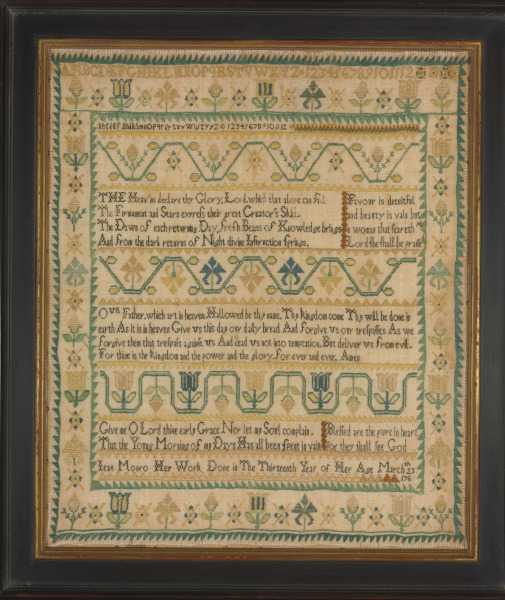 ABCDEFGHIKLMNOPQRSTVWXYZ 1 2 3 4 5 6 7 8 9 10 11 12
1 2 3 4 5 6 7 8 9 10 11 12
THE Heav'ns declare thy Glory, Lord, which that alone can fill
The Firmament and Stars express their great Creator's Skill
The Dawn of each returning Day, fresh Beams of Knowledge brings
And from the dark returns of Night divine Instruction springs
Favour is deceitful
and beauty is vain but
a woman that feareth the
Lord she shall be praised
OVR Father, which art in heaven, Hallowed be thy name, Thy kingdom come Thy will be done in
earth As it is in heaven Give vs this day our daily bread And forgive vs our trespasses As we
forgive them that trespass against vs And lead vs not into temptation, But deliver vs from evil,
For thine is the kingdom and the power and the glory, for ever and ever, Amen
Give me O Lord thine early Grace Nor let my Soul complain
That the Young Morning of my Days Has all been spent in vain
Blessed are the pure in heart
for they shall see God
Her Work Done in The Thirteenth Year of Her Age March 23th
176